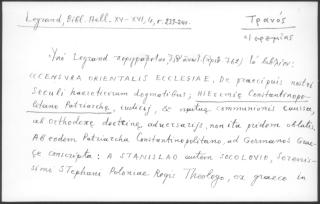 Legrand, Bibl. Hell. XV-XVI, σ. 239-240. Τρανός
Ἱερεμίας
Ὑπό Legrand περιγράφεται τό βιβλίον:
CCENSVRA ORIENTALIS ECCLESIAE, De praecipuis nostri
Seculi haereticorum dogmatibus; HIEREMIAE Constantinopo-
litano Patriarchae, iudicij, & mutuae communionis caussa,
ab orthodoxae doctrinae aduersarijs, non ita pridem oblatis.
AB eodem Patriarcha Constantinopolitano, ad Germanos Grae-
ce conscripta: A STANISLAO autem SOCOLOVIO, Serenis-
simi STephani Poloniae Regis Theologo, ex graeco in